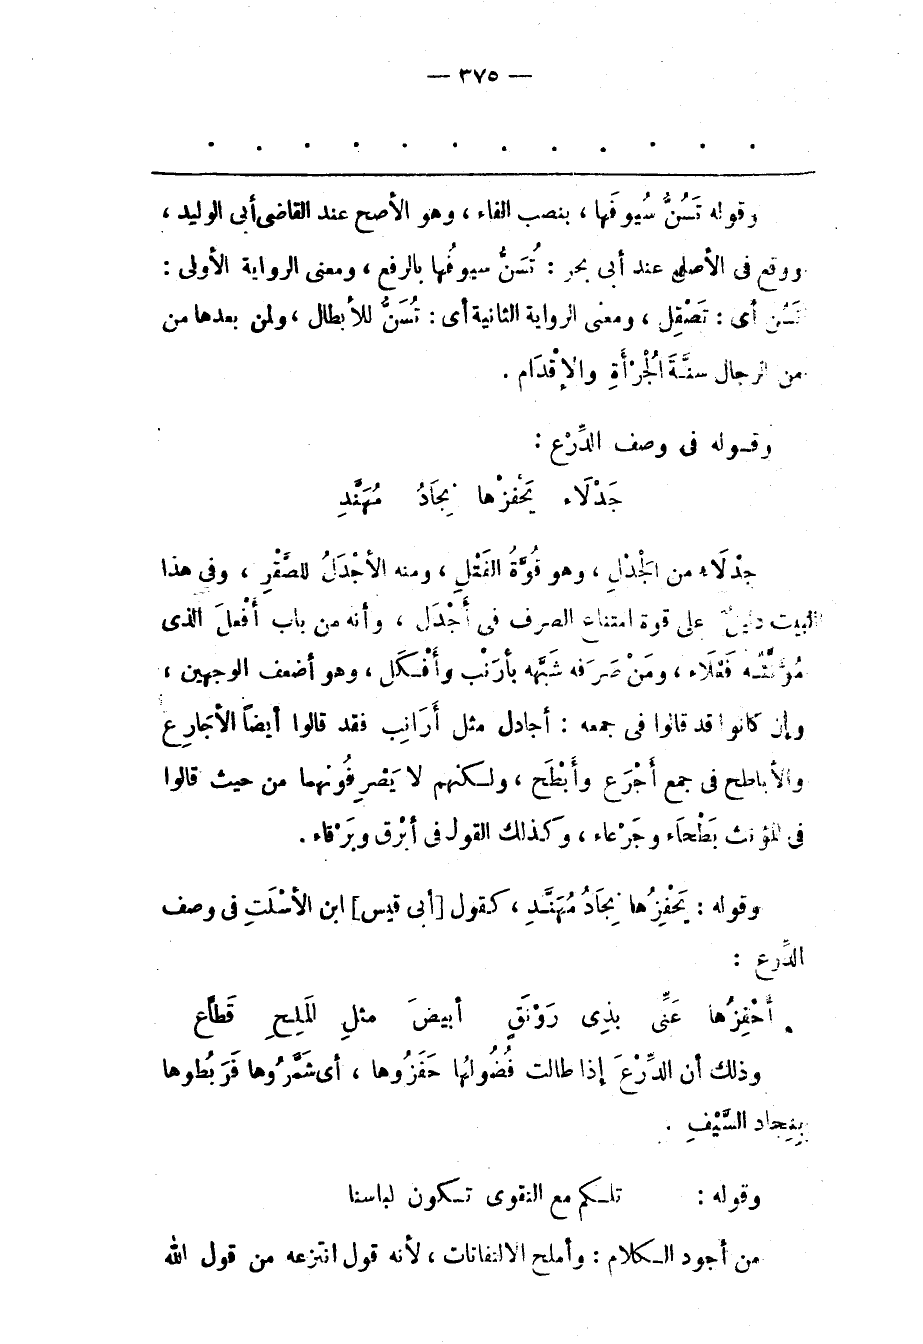 — ٣٧٥ —
. . . . . . . . . . . .
وقوله تَسُنُّ سُيوفَها ، بنصب الفاء ، وهو الأصح عند القاضى أبى الوليد ،
ووقع فى الأصلى عند أبى بحر : تُسَنُّ سيوفُها بالرفع ، ومعنى الرواية الأولى :
تَسُن أى : تَصْقِل ، ومعنى الرواية الثانية أى : تُسَنُّ للأبطال ، ولمن بعدها من
من الرجال سنَّةَ الْجُرْأَةِ والإقْدَام .
وقـوله فى وصف الدِّرْع :
جَدْلَاء يَحْفِزُها نِجَادُ مُهَنَّدِ
جدْلَاء من الْجَدْلِ ، وهو قُوَّةُ الفَتْلِ ، ومنه الأجْدَلُ للصَّقْرِ ، وفى هذا
البيت دليلٌ على قوة امتناع الصرف فى أَجْدَل ، وأنه من باب أَفْعلَ الذى
مُؤَنَّثـه فَعْلَاء ، ومَنْ صَرَفه شَبَّهه بأرَنْب وأَفْـكَل ، وهو أضعف الوجهين ،
وإن كانوا قد قالوا فى جمعه : أجادل مثل أَرَانِب فقد قالوا أيضاً الأجَارِع
والأباطح فى جمع أَجْرَع وأَبْطَح ، ولـكنهم لا يَصْرِفُونهما من حيث قالوا
فى المؤنث بَطْحَاء وجَرْعاء ، وكذلك القول فى أبْرق وبَرْقاء .
وقوله : يَحْفِزُها نِجَادُ مُهَنَّـدِ ، كقول [أبى قيس] ابن الأسْلَتِ فى وصف
الدِّرع :
أَحْفِزُها عَنِّى بذِى رَوْنَقٍ أبيضَ مثلِ المَلِحِ قَطَّاع
وذلك أن الدِّرْعَ إذا طالت فُضُولُها حَفَزُوها ، أى شَمَّرُوها فَرَبَطُوها
بِنِجاد السَّيْفِ .
وقوله : تلـكم مع التقوى تـكون لباسنا
من أجود الـكلام : وأملح الالتفاتات ، لأنه قول انتزعه من قول الله